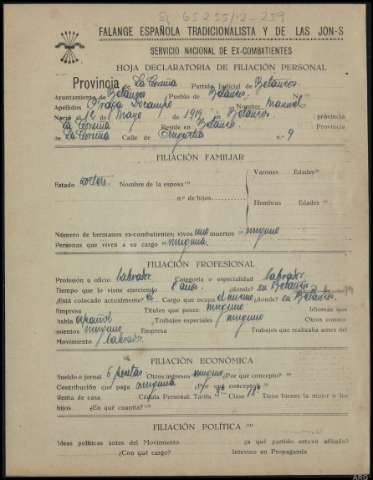 65255/2-259
FALANGE ESPAÑOLA TRADICIONALISTA Y DE LAS JON-S
SERVICIO NACIONAL DE EX-COMBATIENTES
HOJA DECLARATORIA DE FILIACIÓN PERSONAL
Provincia de La Coruña Partido Judicial de Betanzos
Ayuntamiento de Betanzos Pueblo de Betanzos
Apellidos Ocampo Nombre Manuel
Nació de Mayo de 1919 Betanzos provincia
La Coruña Reside en Betanzos Provincia
de La Coruña Calle de n.º 9
FILIACIÓN FAMILIAR
Estado soltero Nombre de la esposa
n.º de hijos
Varones Edades
Hembras Edades
Número de hermanos ex-combatientes: vivos uno muertos ninguno
Personas que viven a su cargo ninguna
FILIACIÓN PROFESIONAL
Profesión u oficio labrador Categoría o especialidad labrador
Tiempo que lo viene ejerciendo 8 años ¿dónde? en Betanzos
¿Está colocado actualmente? Cargo que ocupa el mismo ¿dónde? en Betanzos
Empresa Títulos que posee ninguno Idiomas que
habla español Trabajos especiales ninguno Otros conoci-
mientos ninguno Empresa Trabajos que realizaba antes del
Movimiento labrador
FILIACIÓN ECONÓMICA
Sueldo o jornal 6 pesetas Otros ingresos ninguno ¿Por qué concepto?
Contribución que paga ninguna ¿Por qué concepto?
Renta de casa Cédula Personal Tarifa Clase Tiene hecha la mayor o los
hijos ¿En qué cuantía?
FILIACIÓN POLÍTICA
Ideas políticas antes del Movimiento ¿a qué partido estuvo afiliado?
¿Con qué cargo? Intervino en Propaganda